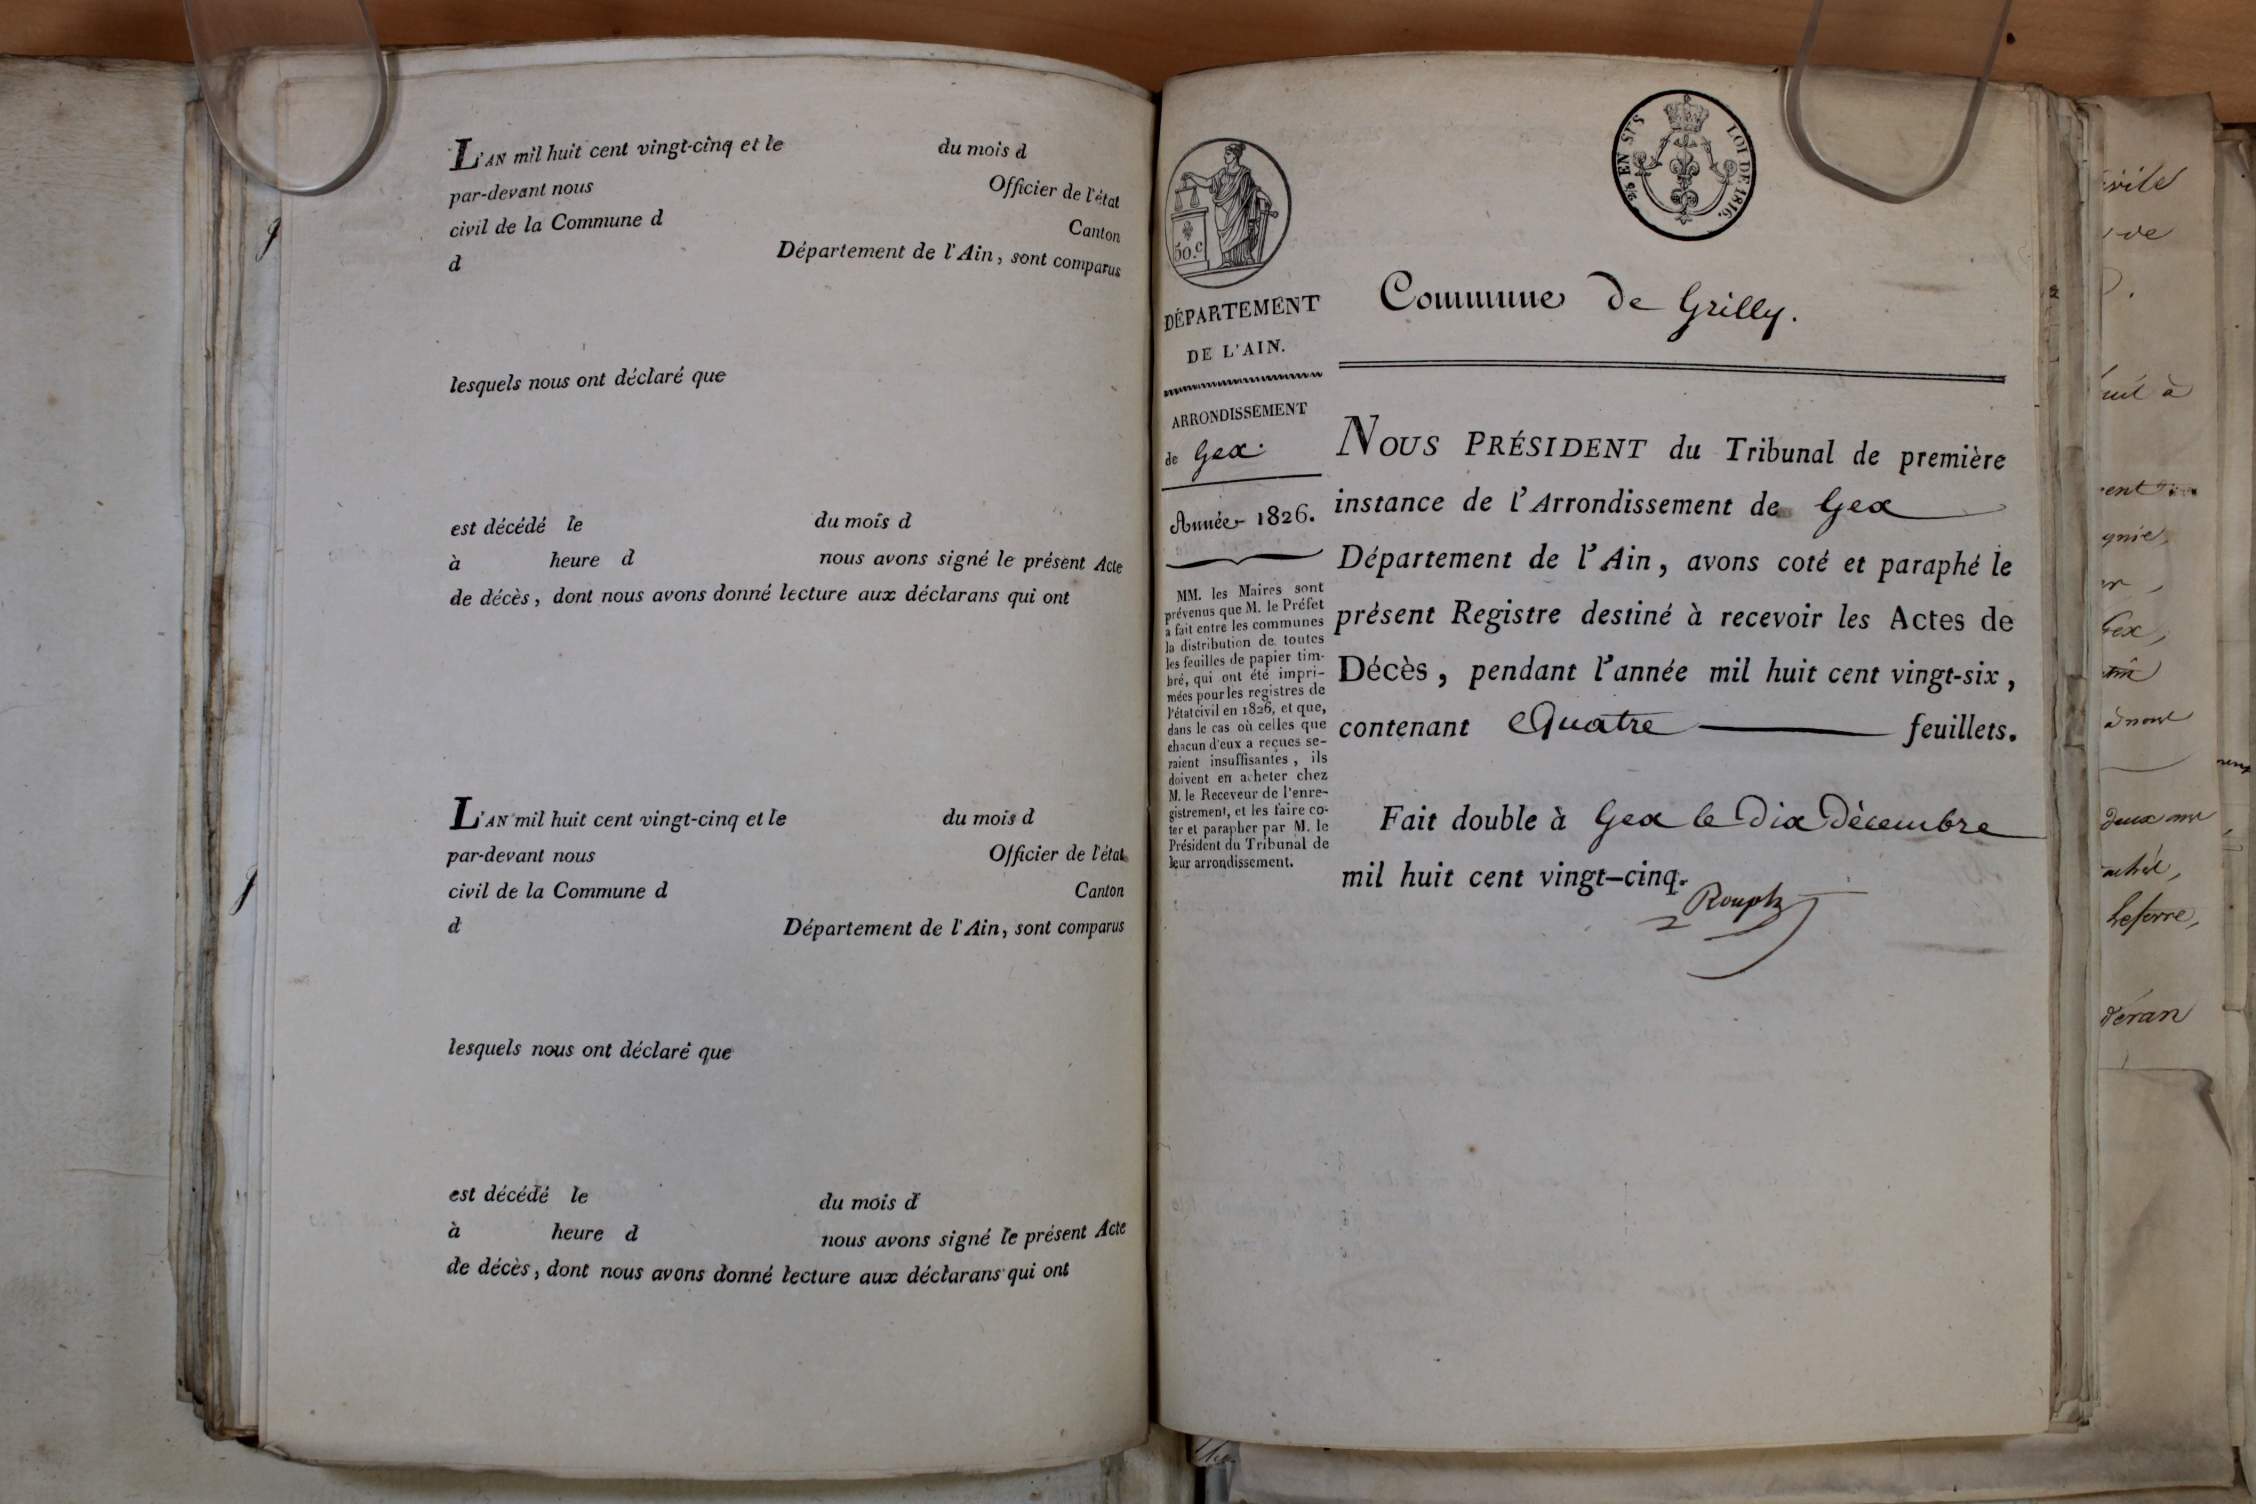 L'AN mil huit cent vingt-cinq et le du mois d
par-devant nous Officier de l'état
civil de la Commune d Canton
d Département de l'Ain, sont comparus
lesquels nous ont déclaré que
est décédé le du mois d
à heure d nous avons signé le présent Acte
de décès, dont nous avons donné lecture aux déclarans qui ont
L'AN mil huit cent vingt-cinq et le du mois d
par-devant nous Officier de l'état
civil de la Commune d Canton
d Département de l'Ain, sont comparus
lesquels nous ont déclaré que
est décédé le du mois d
à heure d nous avons signé le présent Acte
de décès, dont nous avons donné lecture aux déclarans qui ont
50.c
EN SUS LOI DE 1816.
DÉPARTEMENT
DE L'AIN.
ARRONDISSEMENT
de Gex.
Année 1826.
MM. les Maires sont
prévenus que M. le Préfet
a fait entre les communes
la distribution de toutes
les feuilles de papier tim-
bré, qui ont été impri-
mées pour les registres de
l'état civil en 1826, et que,
dans le cas où celles que
chacun d'eux a reçues se-
raient insuffisantes, ils
doivent en acheter chez
M. le Receveur de l'enre-
gistrement, et les faire co-
ter et parapher par M. le
Président du Tribunal de
leur arrondissement.
Commune de Grilly.
NOUS PRÉSIDENT du Tribunal de première
instance de l'Arrondissement de Gex
Département de l'Ain, avons coté et paraphé le
présent Registre destiné à recevoir les Actes de
Décès, pendant l'année mil huit cent vingt-six,
contenant Quatre feuillets.
Fait double à Gex le Dix Décembre
mil huit cent vingt-cinq.